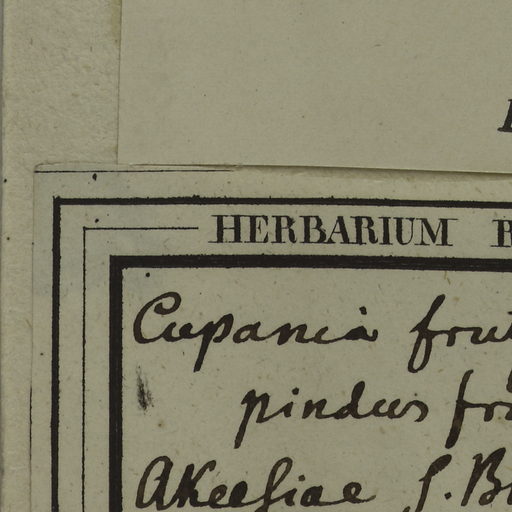 HERBARIUM
Cupania
pindus
Akeesiae J.